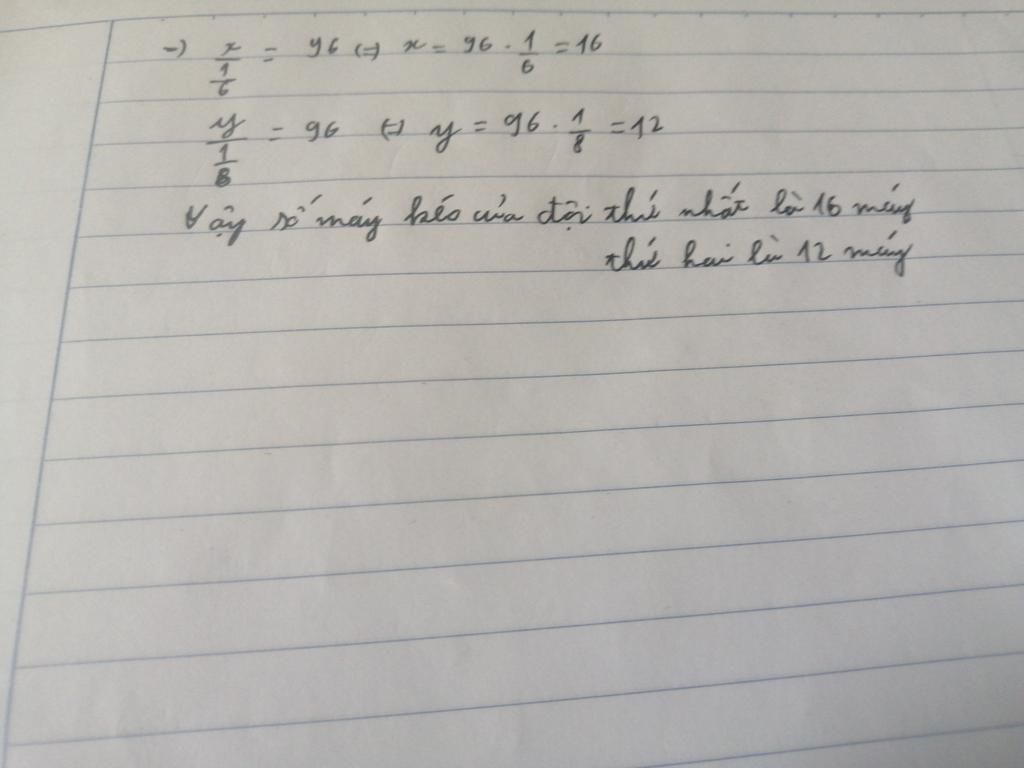 -) x/(1/6) = 96 (=) x = 96 . 1/6 = 16
y/(1/8) = 96 (=) y = 96 . 1/8 = 12
Vậy số máy kéo của đội thứ nhất là 16 máy
thứ hai là 12 máy